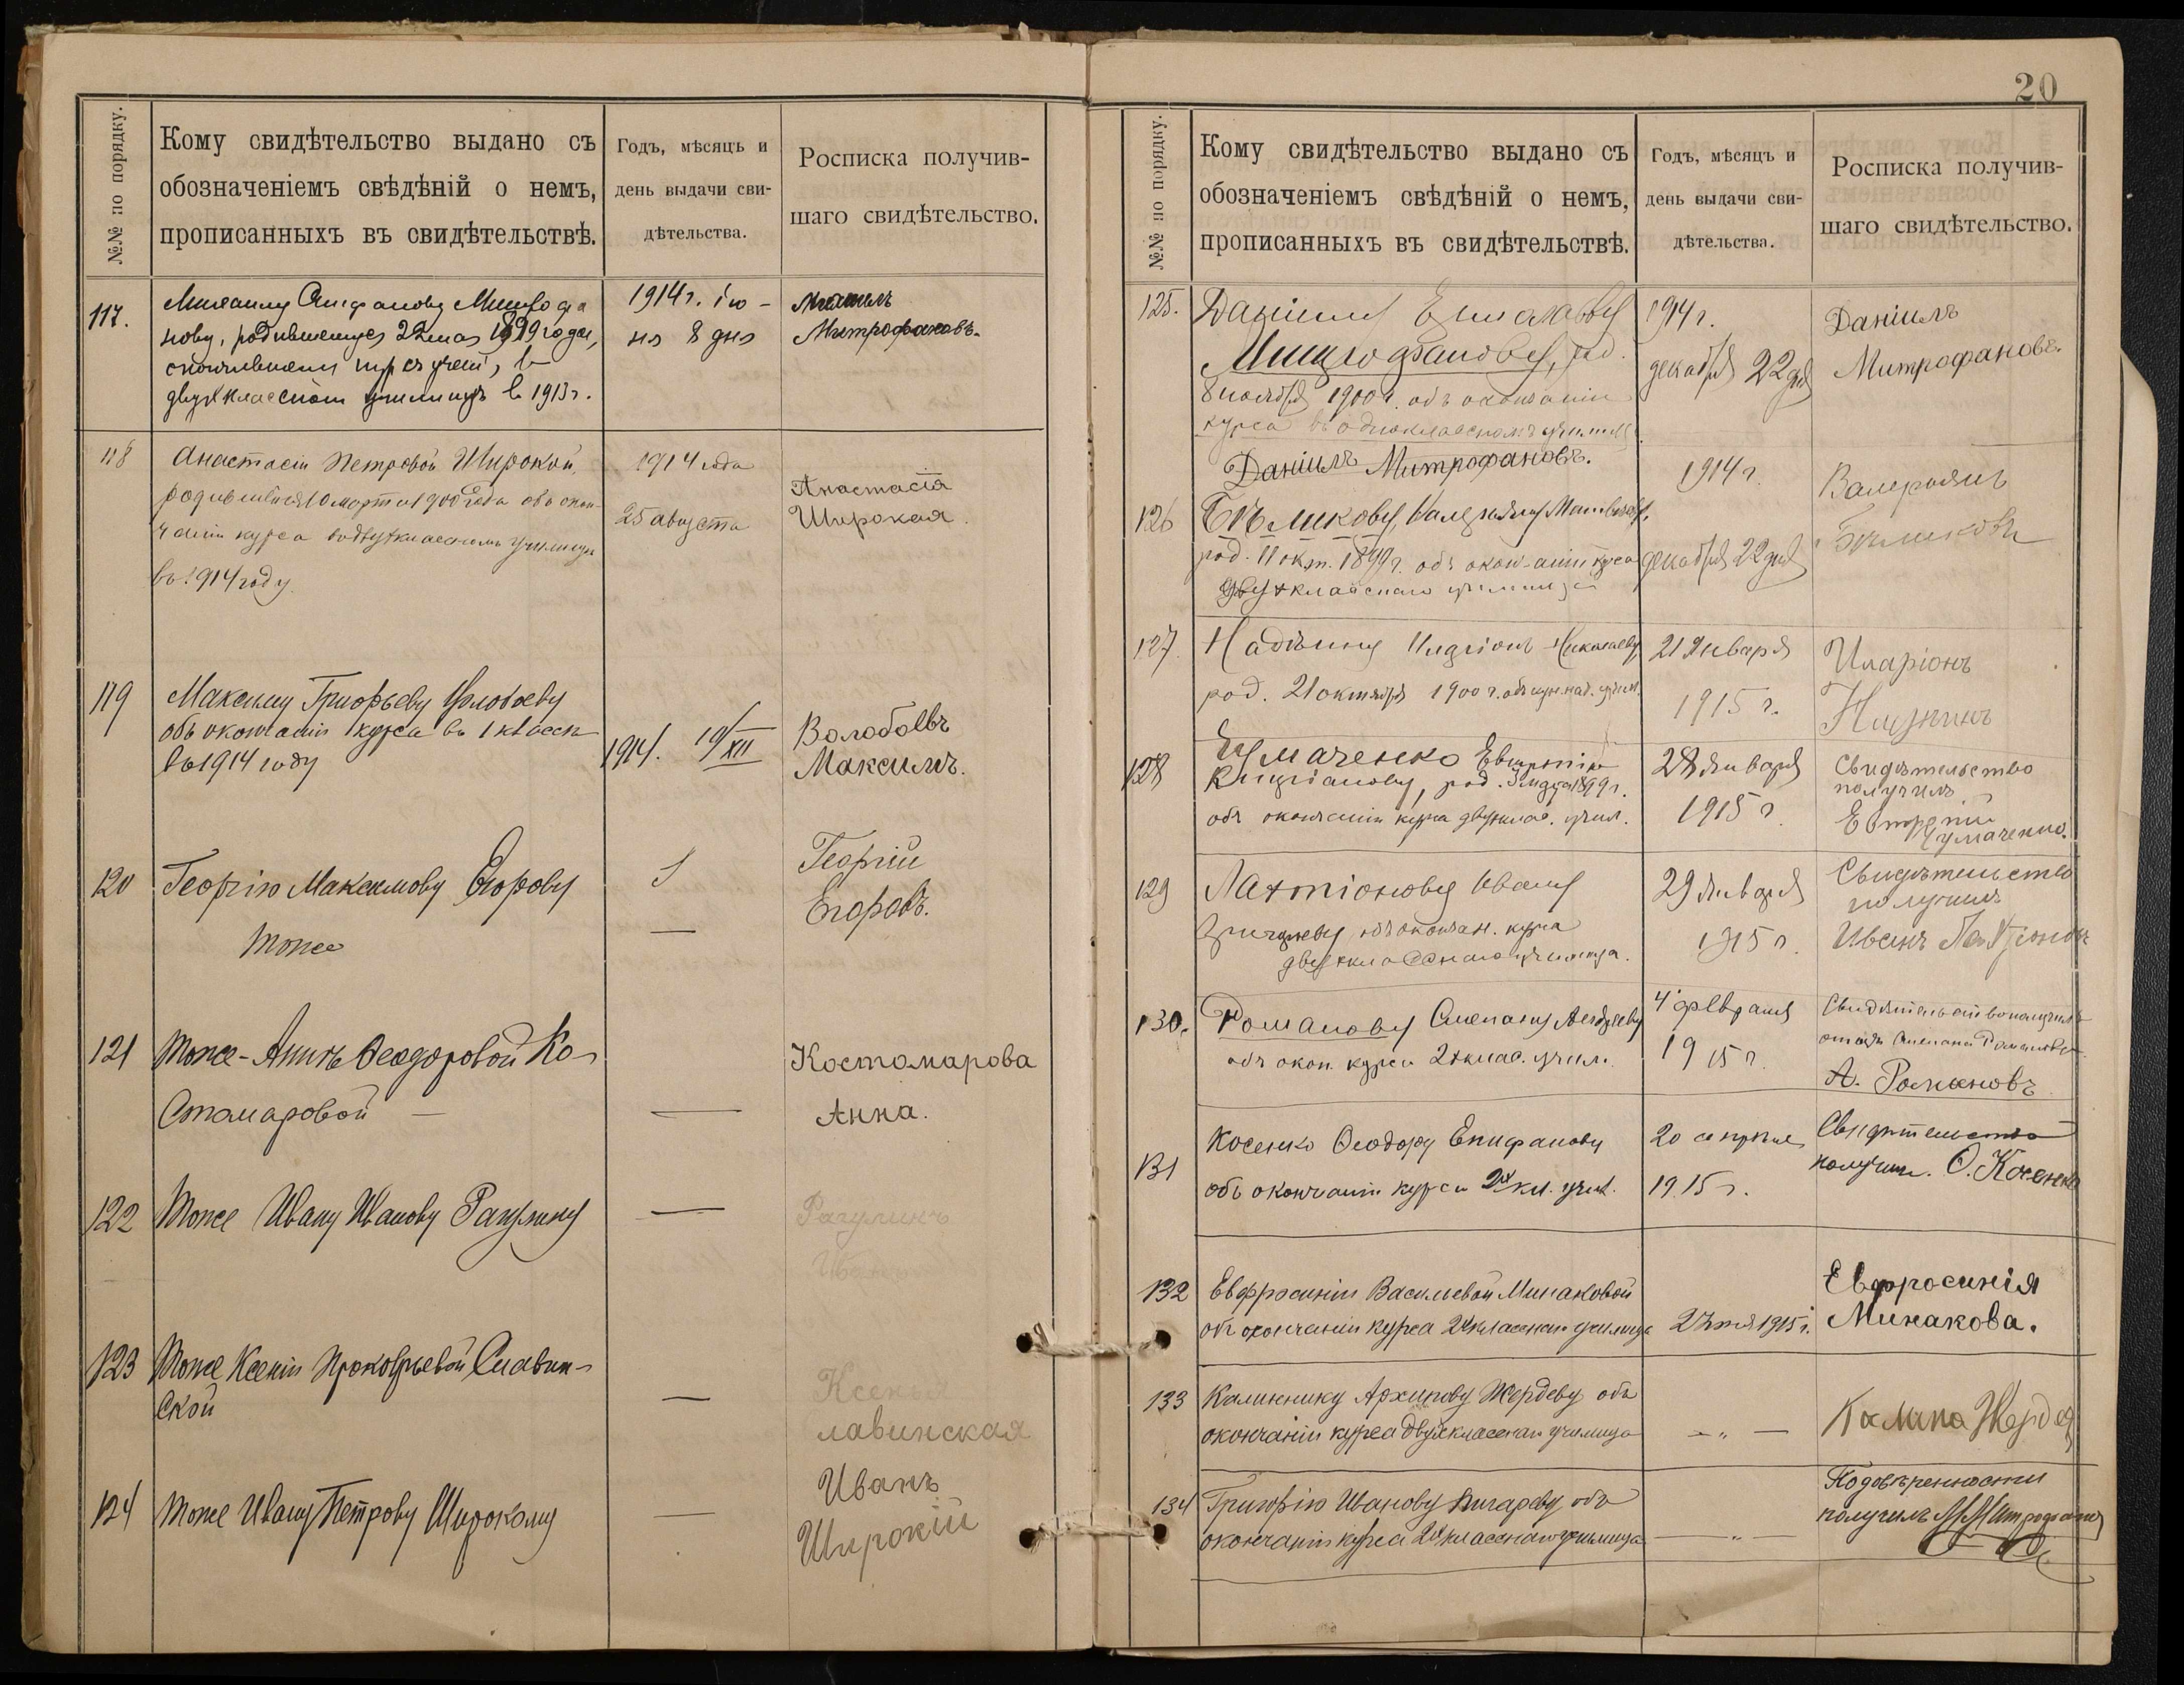 №№ по порядку.
Кому свидѣтельство выдано съ
обозначеніемъ свѣдѣній о немъ,
прописанныхъ въ свидѣтельствѣ.
Годъ, мѣсяцъ и
день выдачи сви-
дѣтельства.
Росписка получив-
шаго свидѣтельство.
117.
Михаилу Епифанову Митрофа
нову, родившемуся 22 мая 1899 года,
окончившему курсъ учен, в
двухклассном училищѣ в 1913 г.
1914 г. ію-
ня 8 дня
Михаилъ
Митрофановъ.
118
Анастасіи Петровой Широкой,
родившейся 10 марта 1900 года объ окон-
чаніи курса въ двухклассномъ училищѣ
въ 1914 году
1914 года
25 августа
Анастасія
Широкая.
119
Максиму Григорьеву
объ окончаніи курса въ 1 классн
въ 1914 году
1914. 19/XII
Волобоевъ
Максимъ.
120
Георгію Максимову Егорову
тоже
—
Георгій
Егоровъ.
121
Тоже - Аннѣ Ѳеодоровой Ко-
стомаровой —
—
Костомарова
Анна.
122
Тоже Ивану Иванову Рагулину
—
Рагулинъ
Иванъ
123
Тоже Ксеніи Прокофьевой Славин-
ской
—
Ксенья
лавинская
124
Тоже Ивану Петрову Широкому
—
Иванъ
Широкій
20
№№ по порядку.
Кому свидѣтельство выдано съ
обозначеніемъ свѣдѣній о немъ,
прописанныхъ въ свидѣтельствѣ.
Годъ, мѣсяцъ и
день выдачи сви-
дѣтельства.
Росписка получив-
шаго свидѣтельство.
125.
Даніилу
Митрофанову, род.
8 ноября 1900 г. объ окончаніи
курса въ одноклассномъ училищ.
Даніилъ Митрофановъ.
1914 г.
декабря 22 дня
Даніилъ
Митрофановъ.
126
Бѣликову Валеріану Матвееву,
род. 11 окт. 1899 г. объ окончаніи курса
двухкласснаго училища
1914 г.
декабря 22 дня
Валерьянъ
Бѣликовъ
127.
Иларіону Николаеву,
род. 21 октября 1900 г. объ нач. учил.
21 Января
1915 г.
Иларіонъ
128
Чумаченко Евтропію
Кипріанову, род. 3 марта 1899 г.
объ окончаніи курса двухклас. учил.
28 января
1915 г.
Свидѣтельство
получилъ
Евтропій
Чумаченко.
129
Лахтіонову Ивану
объ окончан. курса
двухкласснаго училища.
29 Января
1915 г.
Свидѣтельство
получилъ
Иванъ Лахтіоновъ
130.
Романову Степану Андрееву
объ окон. курса 2хклас. учил.
4 февраля
1915 г.
Свидѣтельство получилъ
отецъ Степана Романова
А. Романовъ
131
Косенко Ѳеодору Епифанову
объ окончаніи курса 2х кл. учил.
20 апрѣля
1915 г.
Свидѣтельство
получилъ. Ѳ. Косенко
132
Евфросиніи Васильевой Минаковой
объ окончаніи курса 2хкласснаго училища
1915 г.
Евфросинія
Минакова.
133
Калиннику Архипову Жердеву объ
окончаніи курса двухкласснаго училища
— „ —
Калина Жердев
134
Григорію Иванову Пигареву объ
окончаніи курса 2хкласснаго училища
— „
По довѣренности
получилъ М Митрофанов